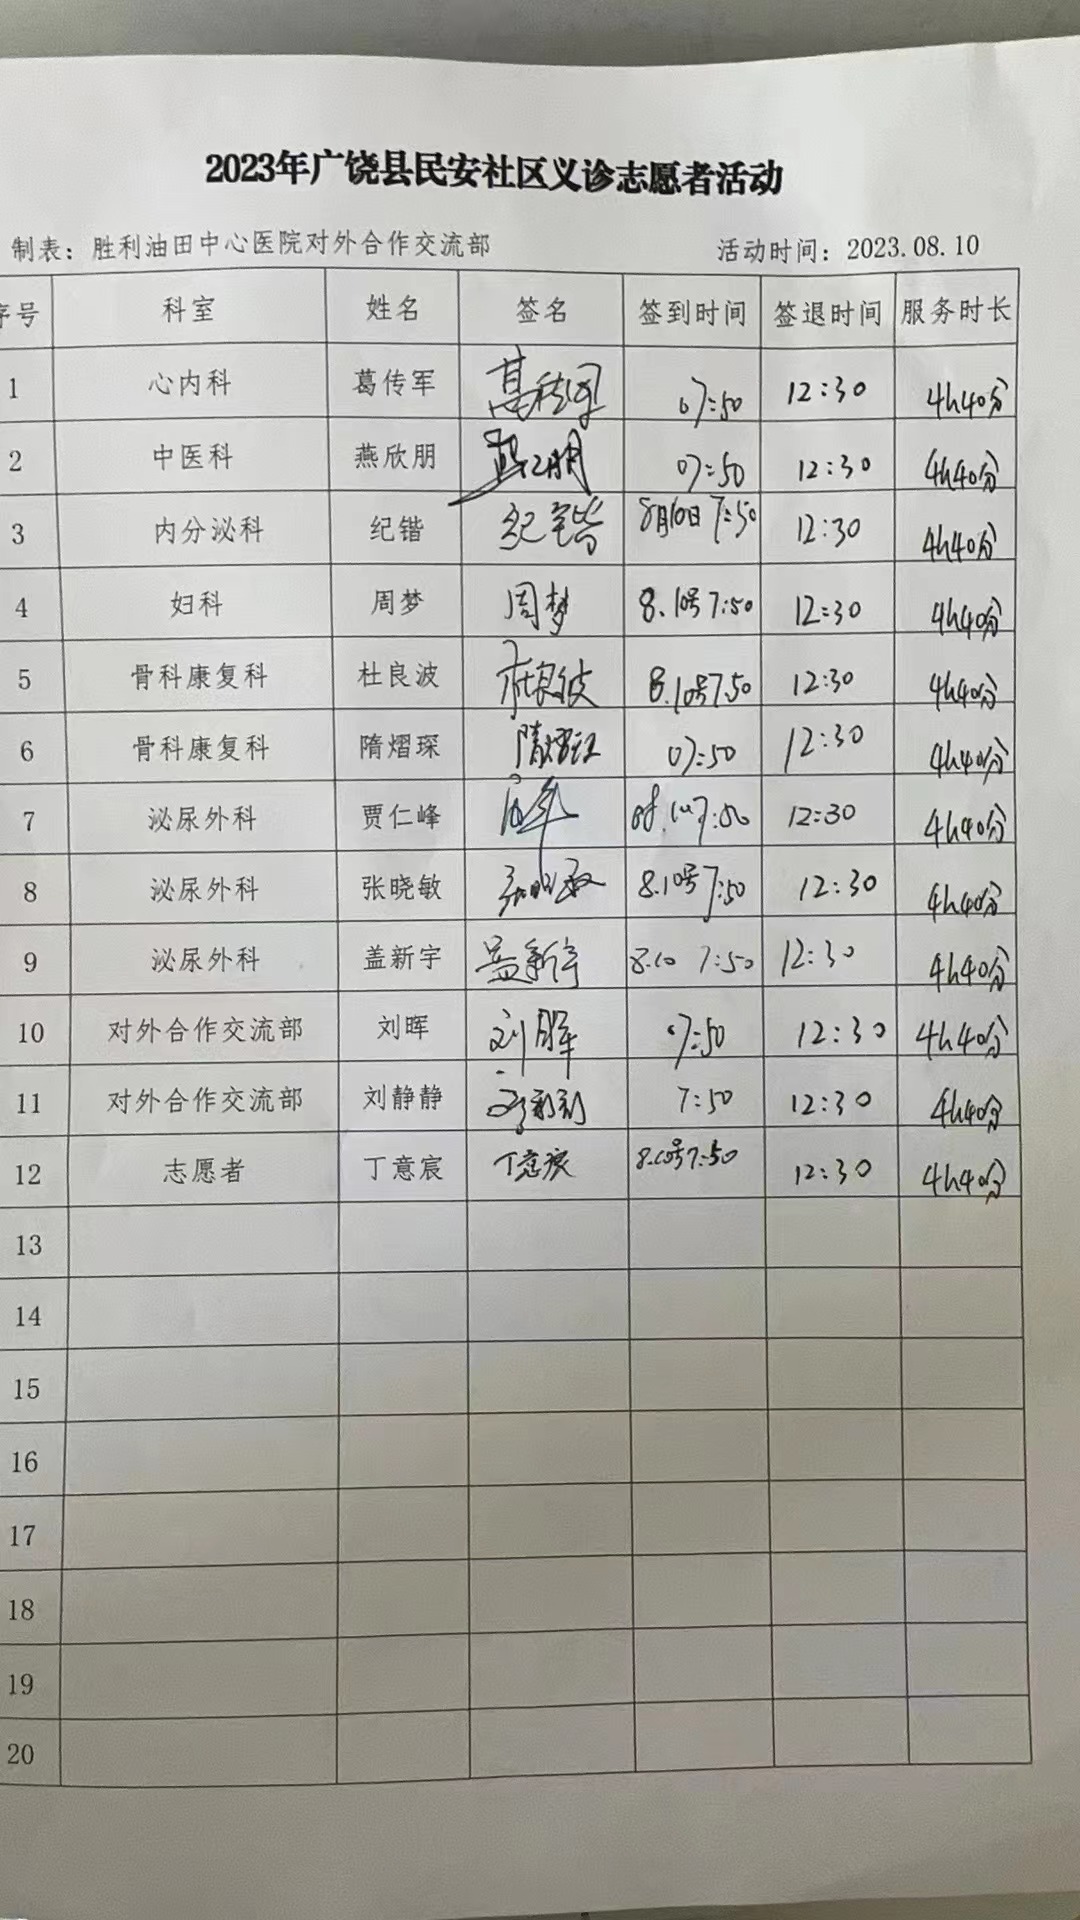 2023年广饶县民安社区义诊志愿者活动
制表：胜利油田中心医院对外合作交流部 活动时间：2023.08.10
序号 科室 姓名 签名 签到时间 签退时间 服务时长
1 心内科 葛传军 葛传军 07:50 12:30 4h40分
2 中医科 燕欣朋 07:50 12:30 4h40分
3 内分泌科 纪锴 纪锴 8月10日 7:50 12:30 4h40分
4 妇科 周梦 周梦 8.10号 7:50 12:30 4h40分
5 骨科康复科 杜良波 杜良波 8.10号 7:50 12:30 4h40分
6 骨科康复科 隋熠琛 隋熠琛 07:50 12:30 4h40分
7 泌尿外科 贾仁峰 08.10 7:50 12:30 4h40分
8 泌尿外科 张晓敏 张晓敏 8.10号 7:50 12:30 4h40分
9 泌尿外科 盖新宇 盖新宇 8.10 7:50 12:30 4h40分
10 对外合作交流部 刘晖 刘晖 07:50 12:30 4h40分
11 对外合作交流部 刘静静 刘静静 7:50 12:30 4h40分
12 志愿者 丁意宸 丁意宸 8.10号 7:50 12:30 4h40分
13
14
15
16
17
18
19
20